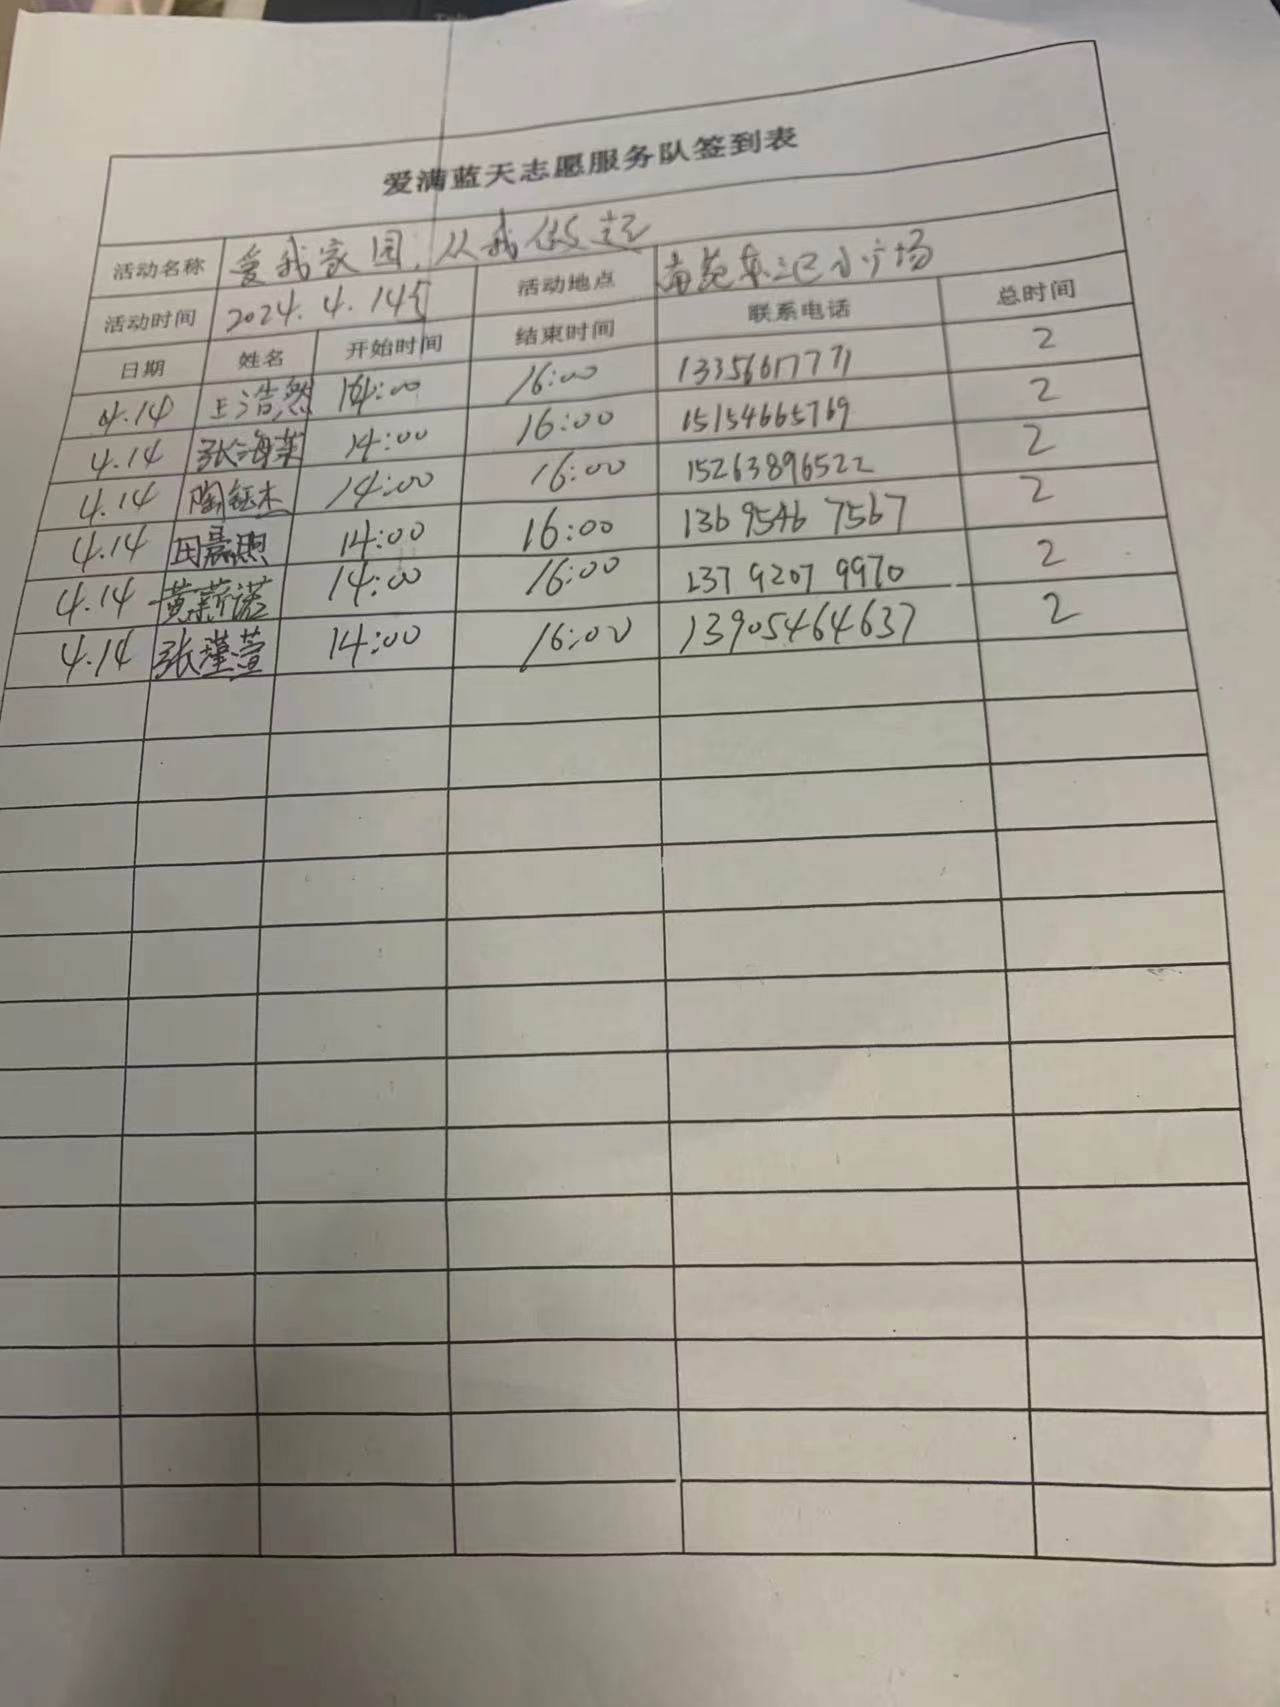 爱满蓝天志愿服务队签到表
活动名称 爱我家园,从我做起
活动时间 2024.4.14 活动地点 东三区小广场
日期 姓名 开始时间 结束时间 联系电话 总时间
4.14 王浩然 14:00 16:00 13356617771 2
4.14 张海荣 14:00 16:00 15154665769 2
4.14 陶钰杰 14:00 16:00 15263896522 2
4.14 田晨熙 14:00 16:00 136 9546 7567 2
4.14 黄薪诺 14:00 16:00 137 9207 9970 2
4.14 张瑾萱 14:00 16:00 13905464637 2